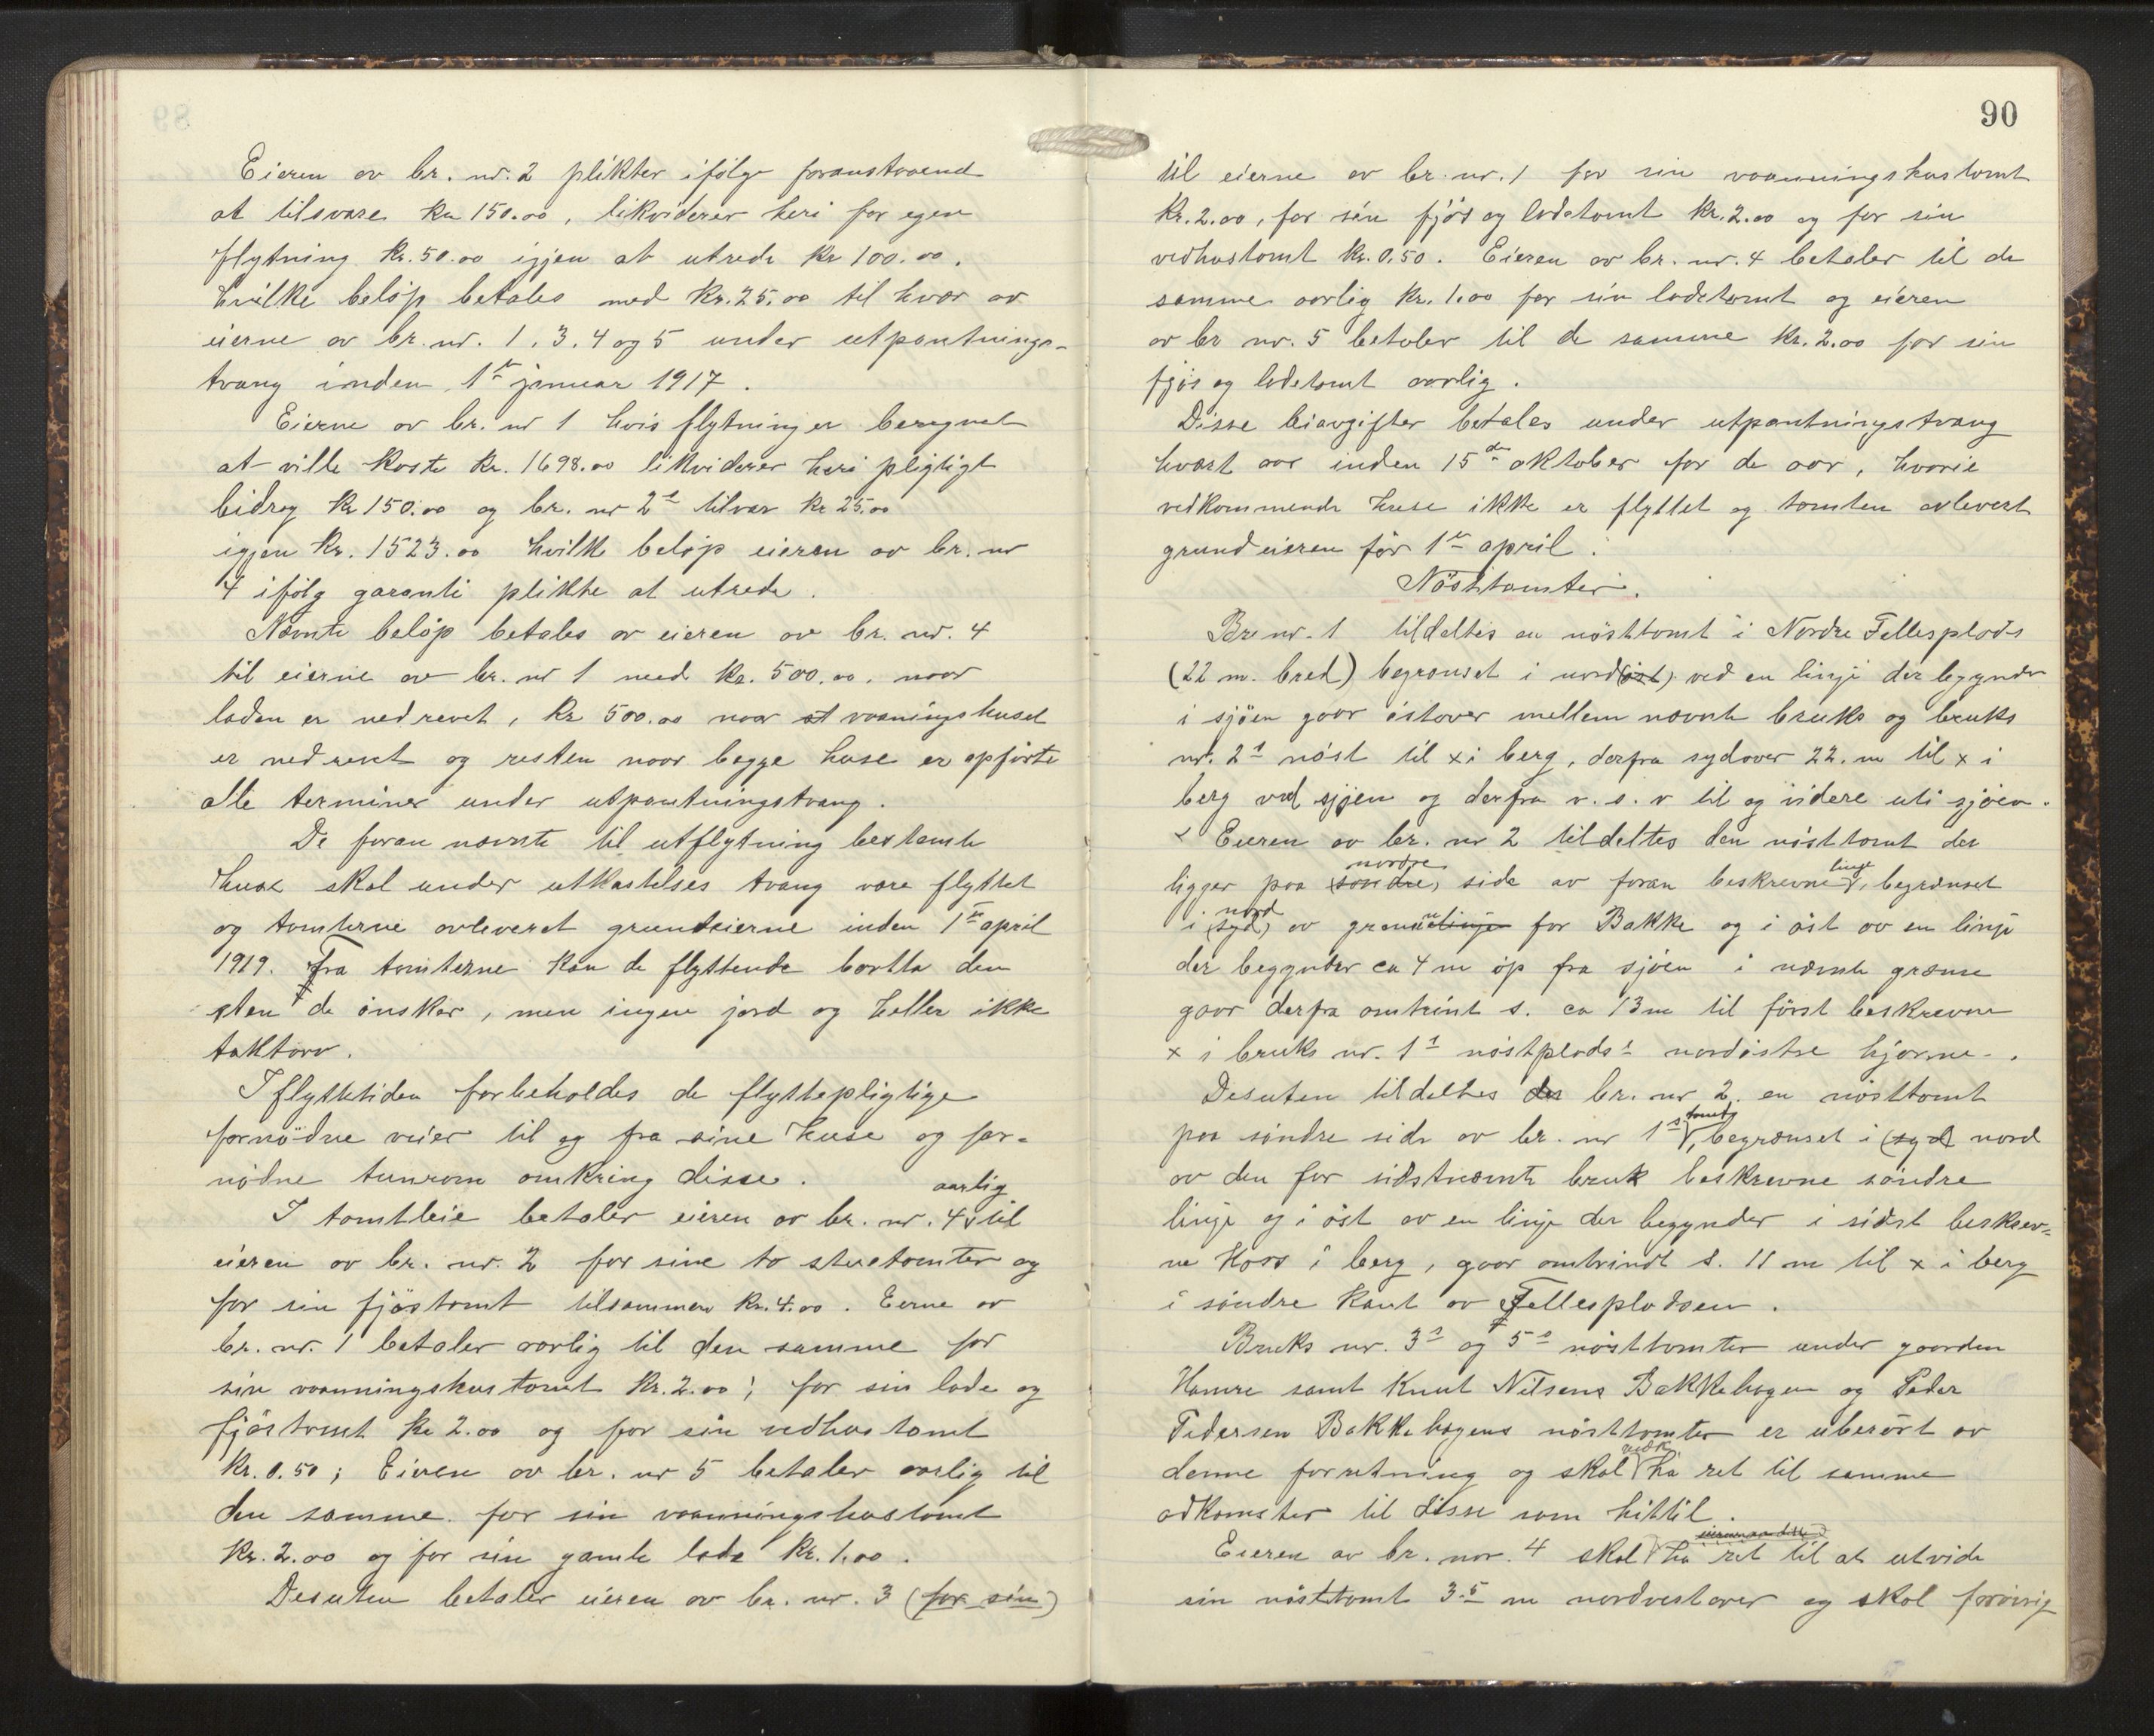 Eieren av br. nr. 2 plikter ifølge foranstaaend
at tilsvare kr 150.00, likviderer heri for egen
flytning kr. 50.00 igjen at utrede kr 100.00.
Hvilke beløp betales med kr. 25.00 til hver av
eierne av br. nr. 1, 3, 4 og 5 under utpantnings-
tvang inden 1ste januar 1917.
Eierne av br. nr 1 hvis flytning er beregnet
at ville koste kr. 1698.00 likviderer heri pligtigt
bidrag kr 150.00 og br. nr 2s tilsvar kr 25.00
igjen kr. 1523.00 hvilke beløp eieren av br. nr
4 ifølg garanti plikte at utrede.
Nævnte beløp betales av eieren av br. nr. 4
til eierne av br. nr 1 med kr. 500.00, naar
laden er nedrevet, kr 500.00 naar at vaaningshuset
er nedrevet og resten naar begge huse er opførte
alle terminer under utpantningstvang.
De foran nævnte til utflytning bestemte
huse skal under utkastelses tvang være flyttet
og tomterne avleveret grundeierne inden 1ste april
1919. Fra tomterne kan de flyttende bortta den
sten de ønsker, men ingen jord og heller ikke
taktorv.
I flyttetiden forbeholdes de flyttepligtige
fornødne veier til og fra sine huse og for-
nødne tunrom omkring disse.
aarlig
I tomtleie betaler eieren av br. nr. 4 til
eieren av br. nr. 2 for sine to stuetomter og
for sin fjøstomt tilsammen kr. 4.00. Eerne av
br. nr. 1 betaler aarlig til den samme for
sin vaanningshustomt kr. 2.00; for sin lade og
fjøstomt kr 2.00 og for sin vedhustomt
kr. 0.50; Eieren av br. nr 5 betaler aarlig til
den samme for sin vaanningshustomt
kr. 2.00 og for sin gamle lade kr. 1.00.
Desuten betaler eieren av br. nr. 3 (for sin)
90
til eierne av br. nr. 1 for sin vaanningshustomt
kr. 2.00, for sin fjøs og ladetomt kr. 2.00 og for sin
vedhustomt kr. 0.50. Eieren av br. nr. 4 betaler til de
samme aarlig kr. 1.00 for sin ladetomt og eieren
av br nr. 5 betaler til de samme kr. 2.00 for sin
fjøs og ladetomt aarlig.
Disse leiavgifter betales under utpantningstvang
hvært aar inden 15de oktober for de aar, hvorie
vedkommende huse ikke er flyttet og tomten avlevert
grundeieren før 1ste april.
Nøsttomter.
Br. nr. 1 tildeltes en nøsttomt i Nordre Fellesplads
(22 m. bred) begrænset i nord(øst) ved en linje der begynder
i sjøen gaar østover mellem nævnte bruks og bruks
nr. 2s nøst til x i berg, derfra sydover 22. m til x i
berg ved sjøen og derfra v. s. v til og videre uti sjøen.
Eieren av br. nr 2 tildeltes den nøsttomt der
nordre linje
ligger paa (søndre) side av foran beskrevne, begrænset
nord
i (syd) av grænselinje for Bakke og i øst av en linje
der begynder ca 4 m op fra sjøen i nævnte grænse
gaar derfra omtrint s. ca 13 m til først beskrevne
x i bruks nr. 1s nøstplads's nordøstre hjørne.
Desuten tildeltes der br. nr 2. en nøsttomt
tomt
paa søndre side av br. nr 1s, begrænset i (syd) nord
av den for sidstnævnte bruk beskrevne søndre
linje og i øst av en linje der begynder i sidst beskrev-
ne kors i berg, gaar omtrindt s. 11 m til x i berg
i søndre kant av Fellespladsen.
Bruks nr. 3s og 5s nøsttomter under gaarden
Hamre samt Knut Nilsens Bakkehagen og Peder
Pedersen Bakkehagens nøsttomter er uberørt av
vedk.
denne forretning og skal ha ret til samme
adkomster til disse som hittil.
Eieren av br. nr. 4 skal ha ret til at utvide
sin nøsttomt 3.5 m nordvestover og skal forøvrig